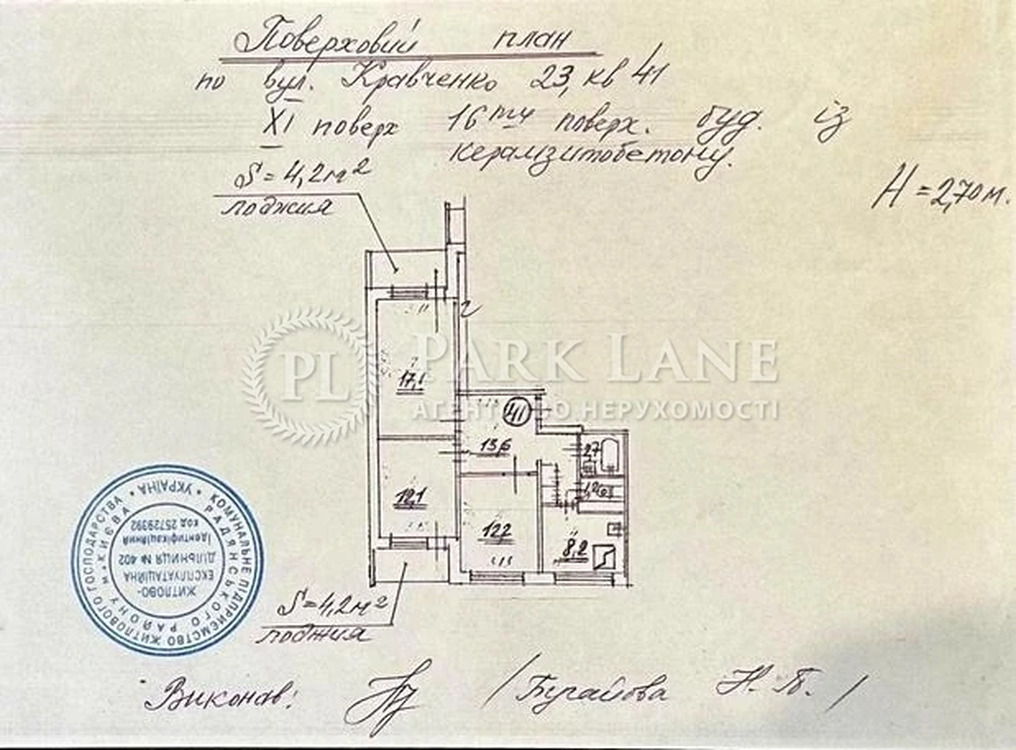 Поверховий план
по вул. Кравченко 23, кв 41
XI поверх 16 ти поверх. буд. із
керамзитобетону.
S = 4,2 м²
лоджия
H = 2,70 м.
PL PARK LANE
АГЕНТСТВО НЕРУХОМОСТІ
17,1
41
13,6
2,7
12,1
1,2
12,2
8,2
S = 4,2 м²
лоджия
КОМУНАЛЬНЕ ПІДПРИЄМСТВО ЖИТЛОВОГО ГОСПОДАРСТВА
УКРАЇНА
РАДЯНСЬКОГО РАЙОНУ м. КИЄВА
ЖИТЛОВО-
ЕКСПЛУАТАЦІЙНА
ДІЛЬНИЦЯ № 402
Ідентифікаційний
код 25729392
Виконав: / Бугайова Н. /